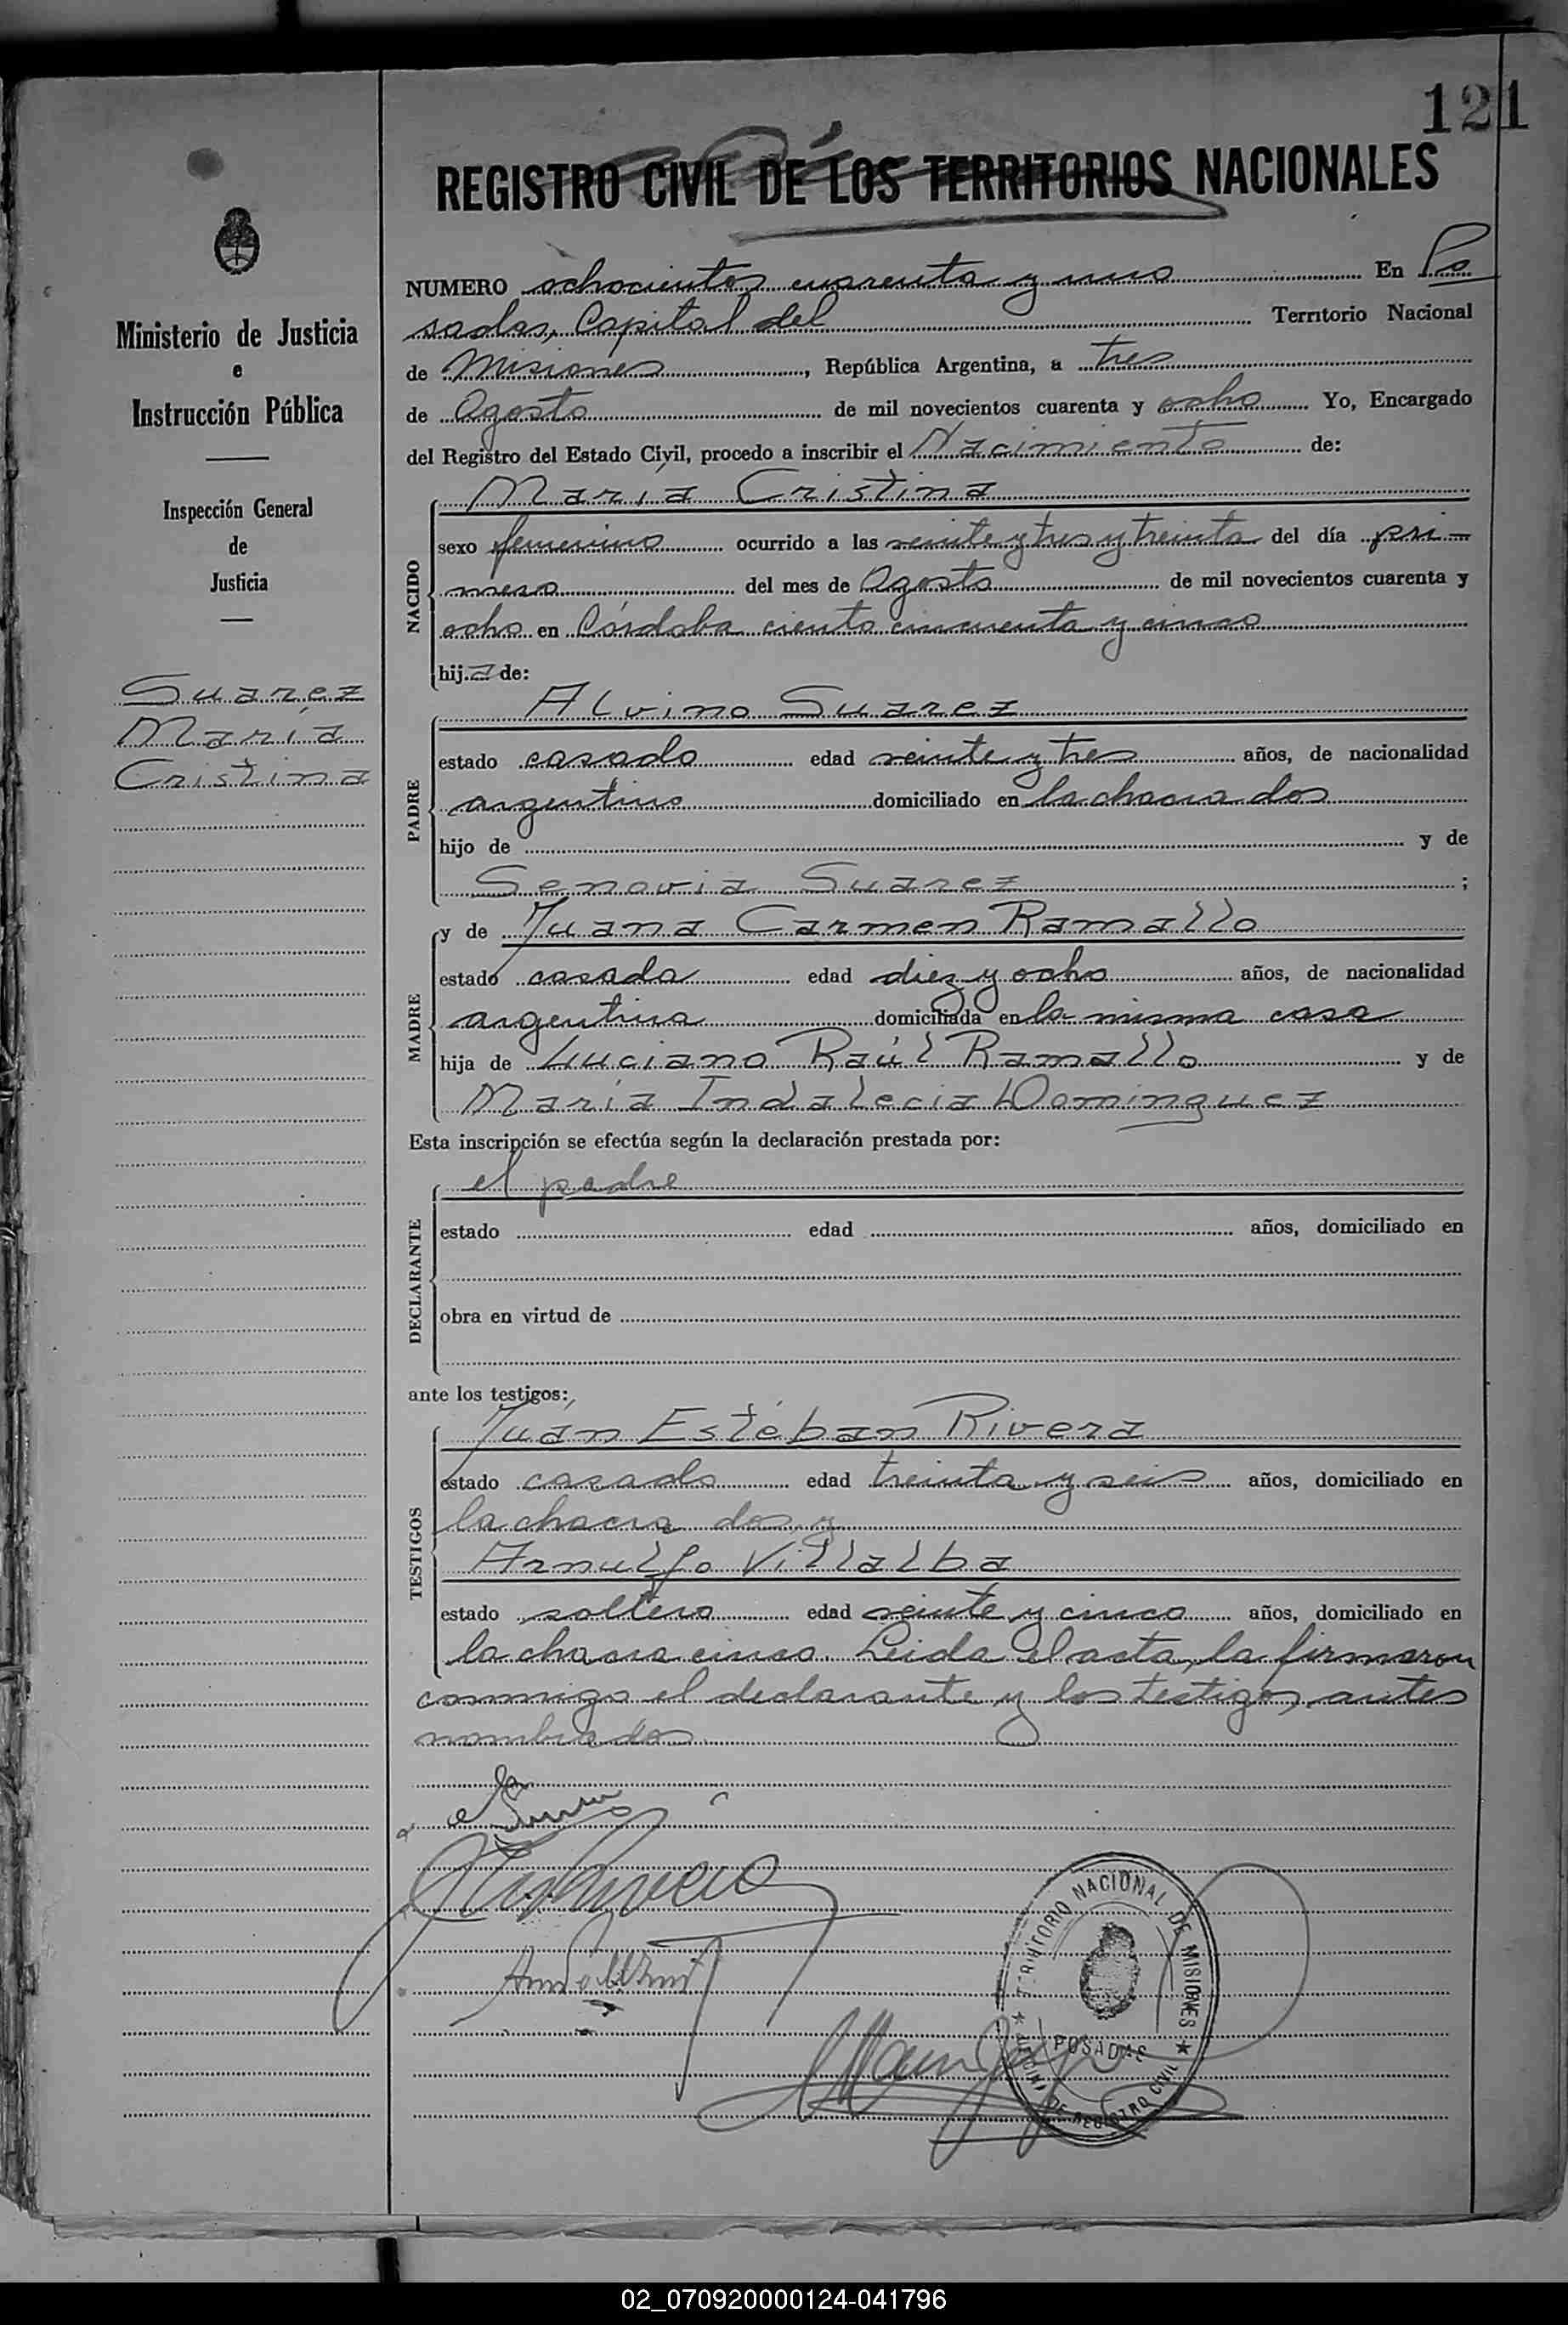 121
REGISTRO CIVIL DE LOS TERRITORIOS NACIONALES
Ministerio de Justicia
e
Instrucción Pública
Inspección General
de
Justicia
Suarez
María
Cristina
NUMERO ochocientos cuarenta y uno En Po
sadas, Capital del Territorio Nacional
de Misiones, República Argentina, a tres
de Agosto de mil novecientos cuarenta y ocho Yo, Encargado
del Registro del Estado Civil, procedo a inscribir el Nacimiento de:
NACIDO
María Cristina
sexo femenino ocurrido a las veinte y tres y treinta del día pri-
mero del mes de Agosto de mil novecientos cuarenta y
ocho en Córdoba ciento cincuenta y cinco
hija de:
PADRE
Alvino Suarez
estado casado edad veinte y tres años, de nacionalidad
argentino domiciliado en la chacra dos
hijo de y de
Senovia Suarez ;
MADRE
y de Juana Carmen Ramallo
estado casada edad diez y ocho años, de nacionalidad
argentina domiciliada en la misma casa
hija de Luciano Raúl Ramallo y de
María Indalecia Dominguez
Esta inscripción se efectúa según la declaración prestada por:
DECLARANTE
el padre
estado edad años, domiciliado en
obra en virtud de
ante los testigos:
TESTIGOS
Juan Estéban Rivera
estado casado edad treinta y seis años, domiciliado en
la chacra dos y
Arnulfo Villalba
estado soltero edad veinte y cinco años, domiciliado en
la chacra cinco. Leida el acta, la firmaron
conmigo el declarante y los testigos, antes
nombrados
TERRITORIO NACIONAL DE MISIONES
POSADAS
OFICINA DE REGISTRO CIVIL
02_070920000124-041796